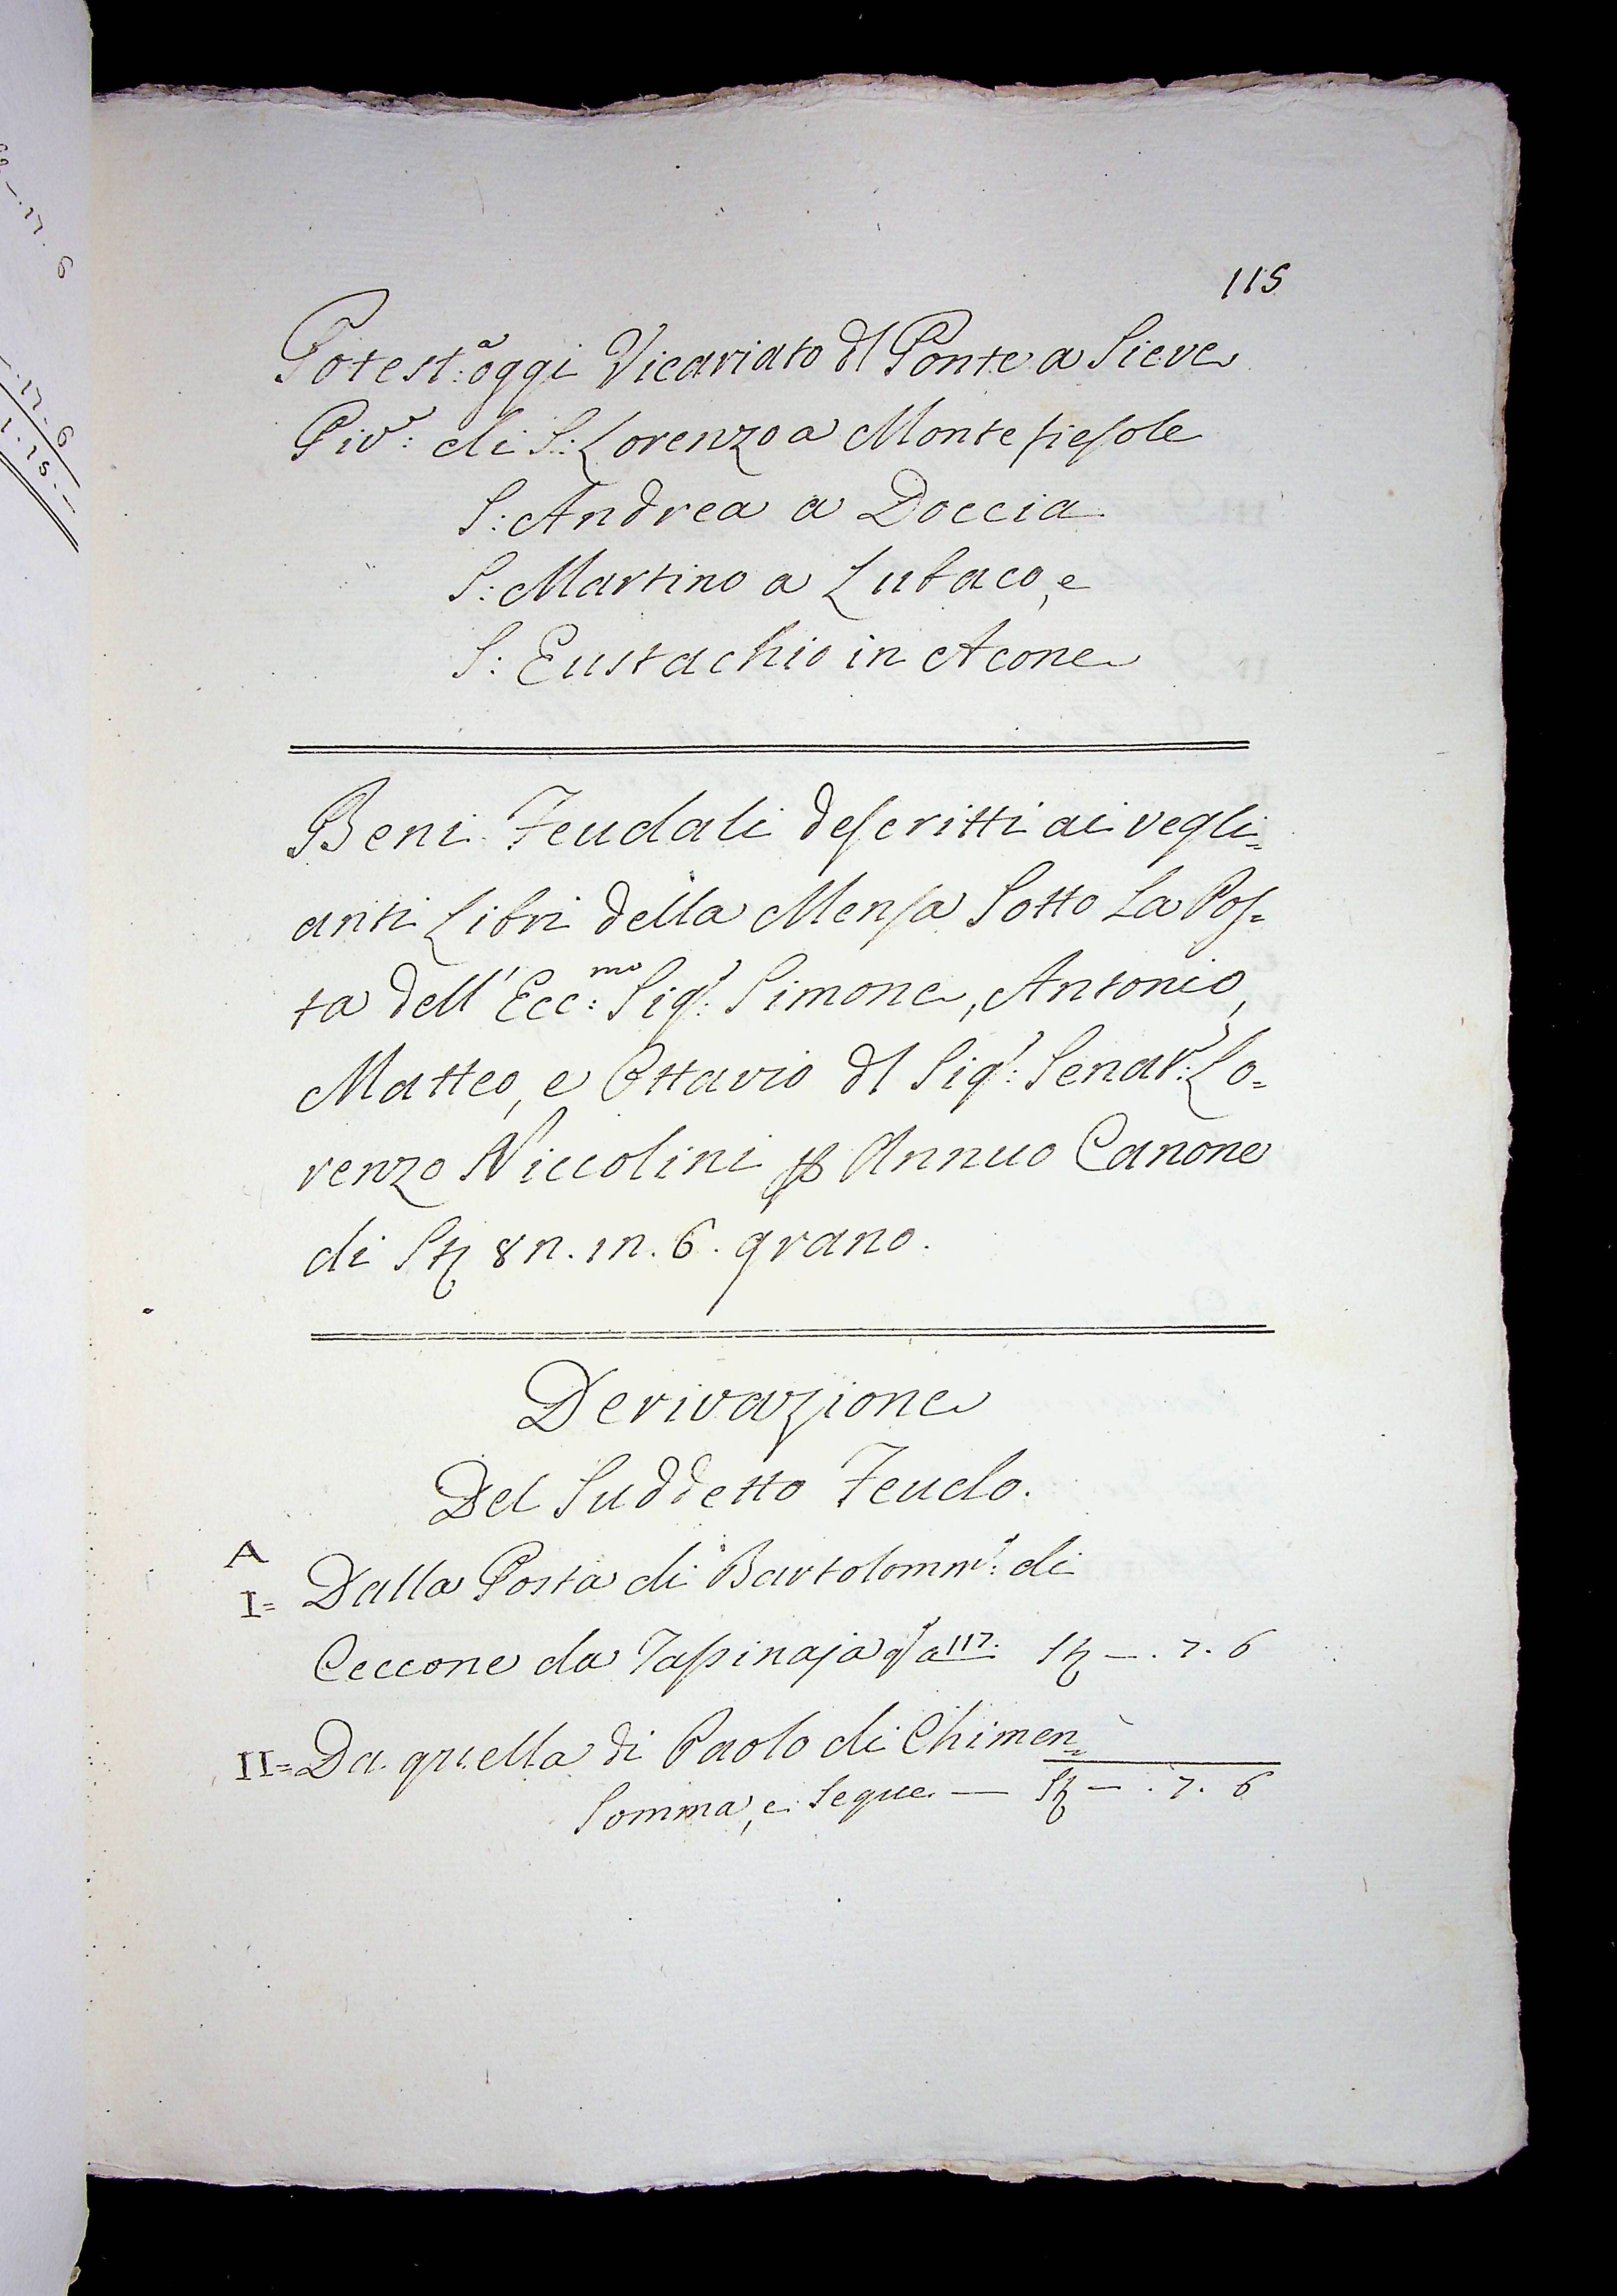 69 –. 17. 6
–. 17. 6
1. 15. –
115
Potest:ª oggi Vicariato dl Ponte a Sieve
Piv:ʳ di S: Lorenzo a Monte fiesole
S: Andrea a Doccia
S: Martino a Lubaco, e
S: Eustachio in Acone
Beni Feudali descritti ai vegli=
anti Libri della Mensa Sotto La Pos=
ta dell' Ecc:mo Sigʳ: Simone, Antonio,
Matteo, e Ottavio dl Sigʳ: Senatʳ: Lo=
renzo Niccolini ꝑ Annuo Canone
di St 8n. 1n. 6. grano.
Derivazione
Del Suddetto Feudo.
A
I= Dalla Posta di Bartolommº: di
Ceccone da Tassinaja qˢ a 117. St –. 7. 6
II= Da quella di Paolo di Chimen=
Somma, e Segue — St –. 7. 6